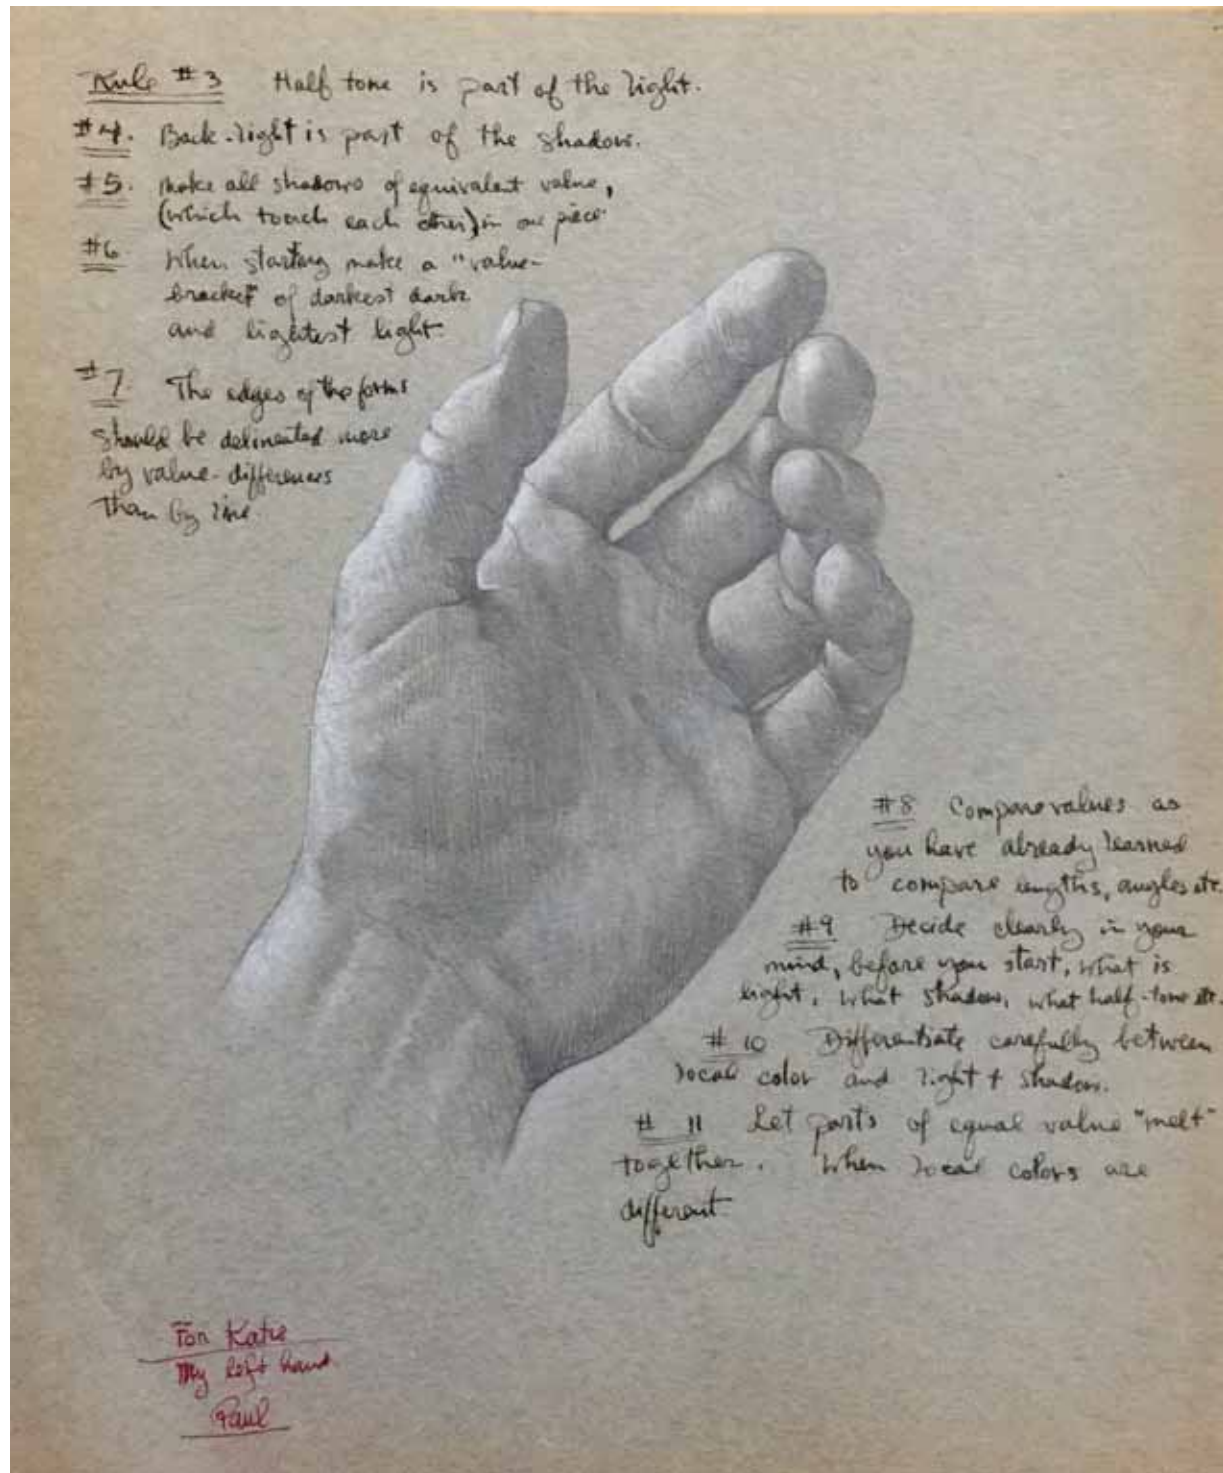 Rule #3 Half tone is part of the light.
#4. Back-light is part of the shadow.
#5. Make all shadows of equivalent value,
(which touch each other) in one piece
#6 When starting make a "value-
bracket" of darkest dark
and lightest light.
#7. The edges of the forms
should be delineated more
by value-differences
than by line
#8 Compare values as
you have already learned
to compare lengths, angles etc.
#9 Decide clearly in your
mind, before you start, what is
light, what shadow, what half-tone etc.
#10 Differentiate carefully between
local color and light + shadow.
#11 Let parts of equal value "melt"
together. When local colors are
different.
For Katie
My left hand.
Paul